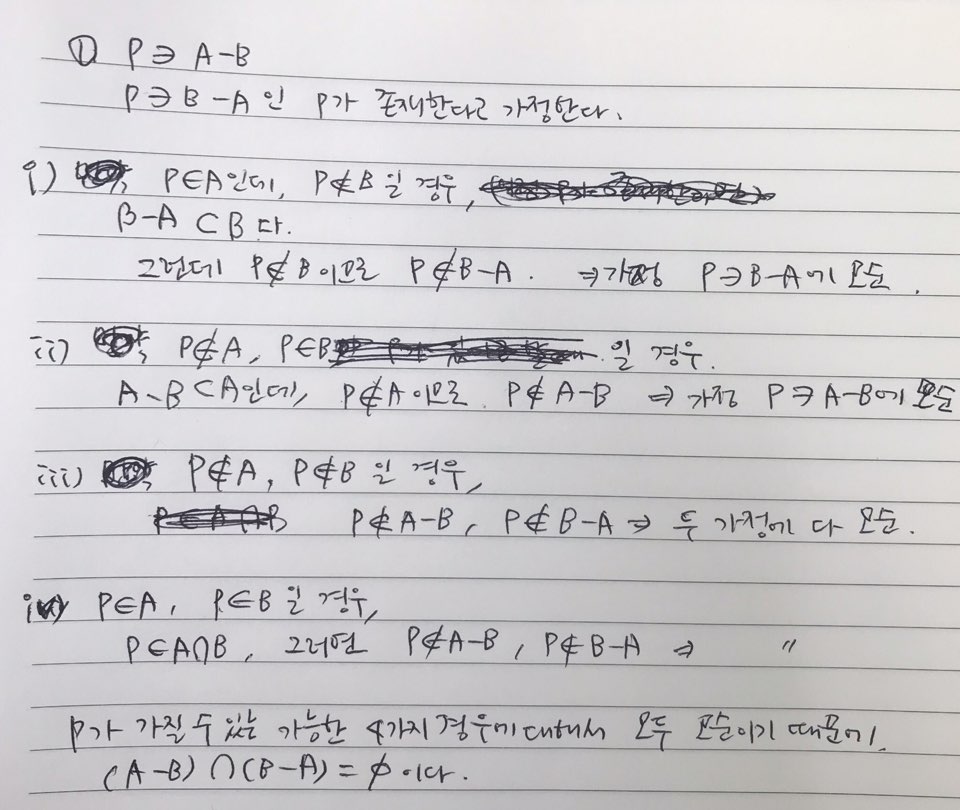 ① P∋A-B
P∋B-A 인 P가 존재한다고 가정한다.
i) P∈A인데, P∉B 일 경우,
B-A⊂B 다.
그런데 P∉B 이므로 P∉B-A. ⇒가정 P∋B-A에 모순.
ii) P∉A, P∈B 일 경우.
A-B⊂A인데, P∉A이므로 P∉A-B ⇒ 가정 P∋A-B에 모순
iii) P∉A, P∉B 일 경우,
P∉A-B, P∉B-A ⇒ 두 가정에 다 모순.
iv) P∈A, P∈B 일 경우,
P∈A∩B, 그러면 P∉A-B, P∉B-A ⇒ 〃
P가 가질 수 있는 가능한 4가지 경우에 대해서 모두 모순이기 때문에,
(A-B)∩(B-A)=∅이다.